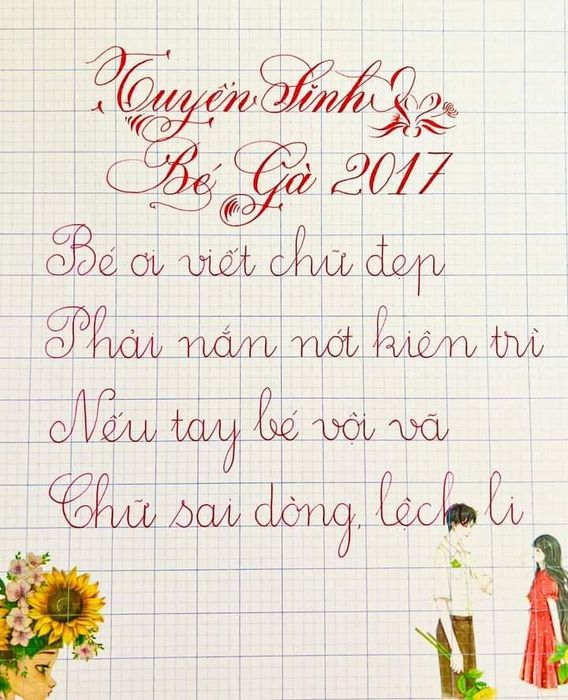 Tuyển Sinh
Bé Gà 2017
Bé ơi viết chữ đẹp
Phải nắn nót kiên trì
Nếu tay bé vội vã
Chữ sai dòng, lệch li